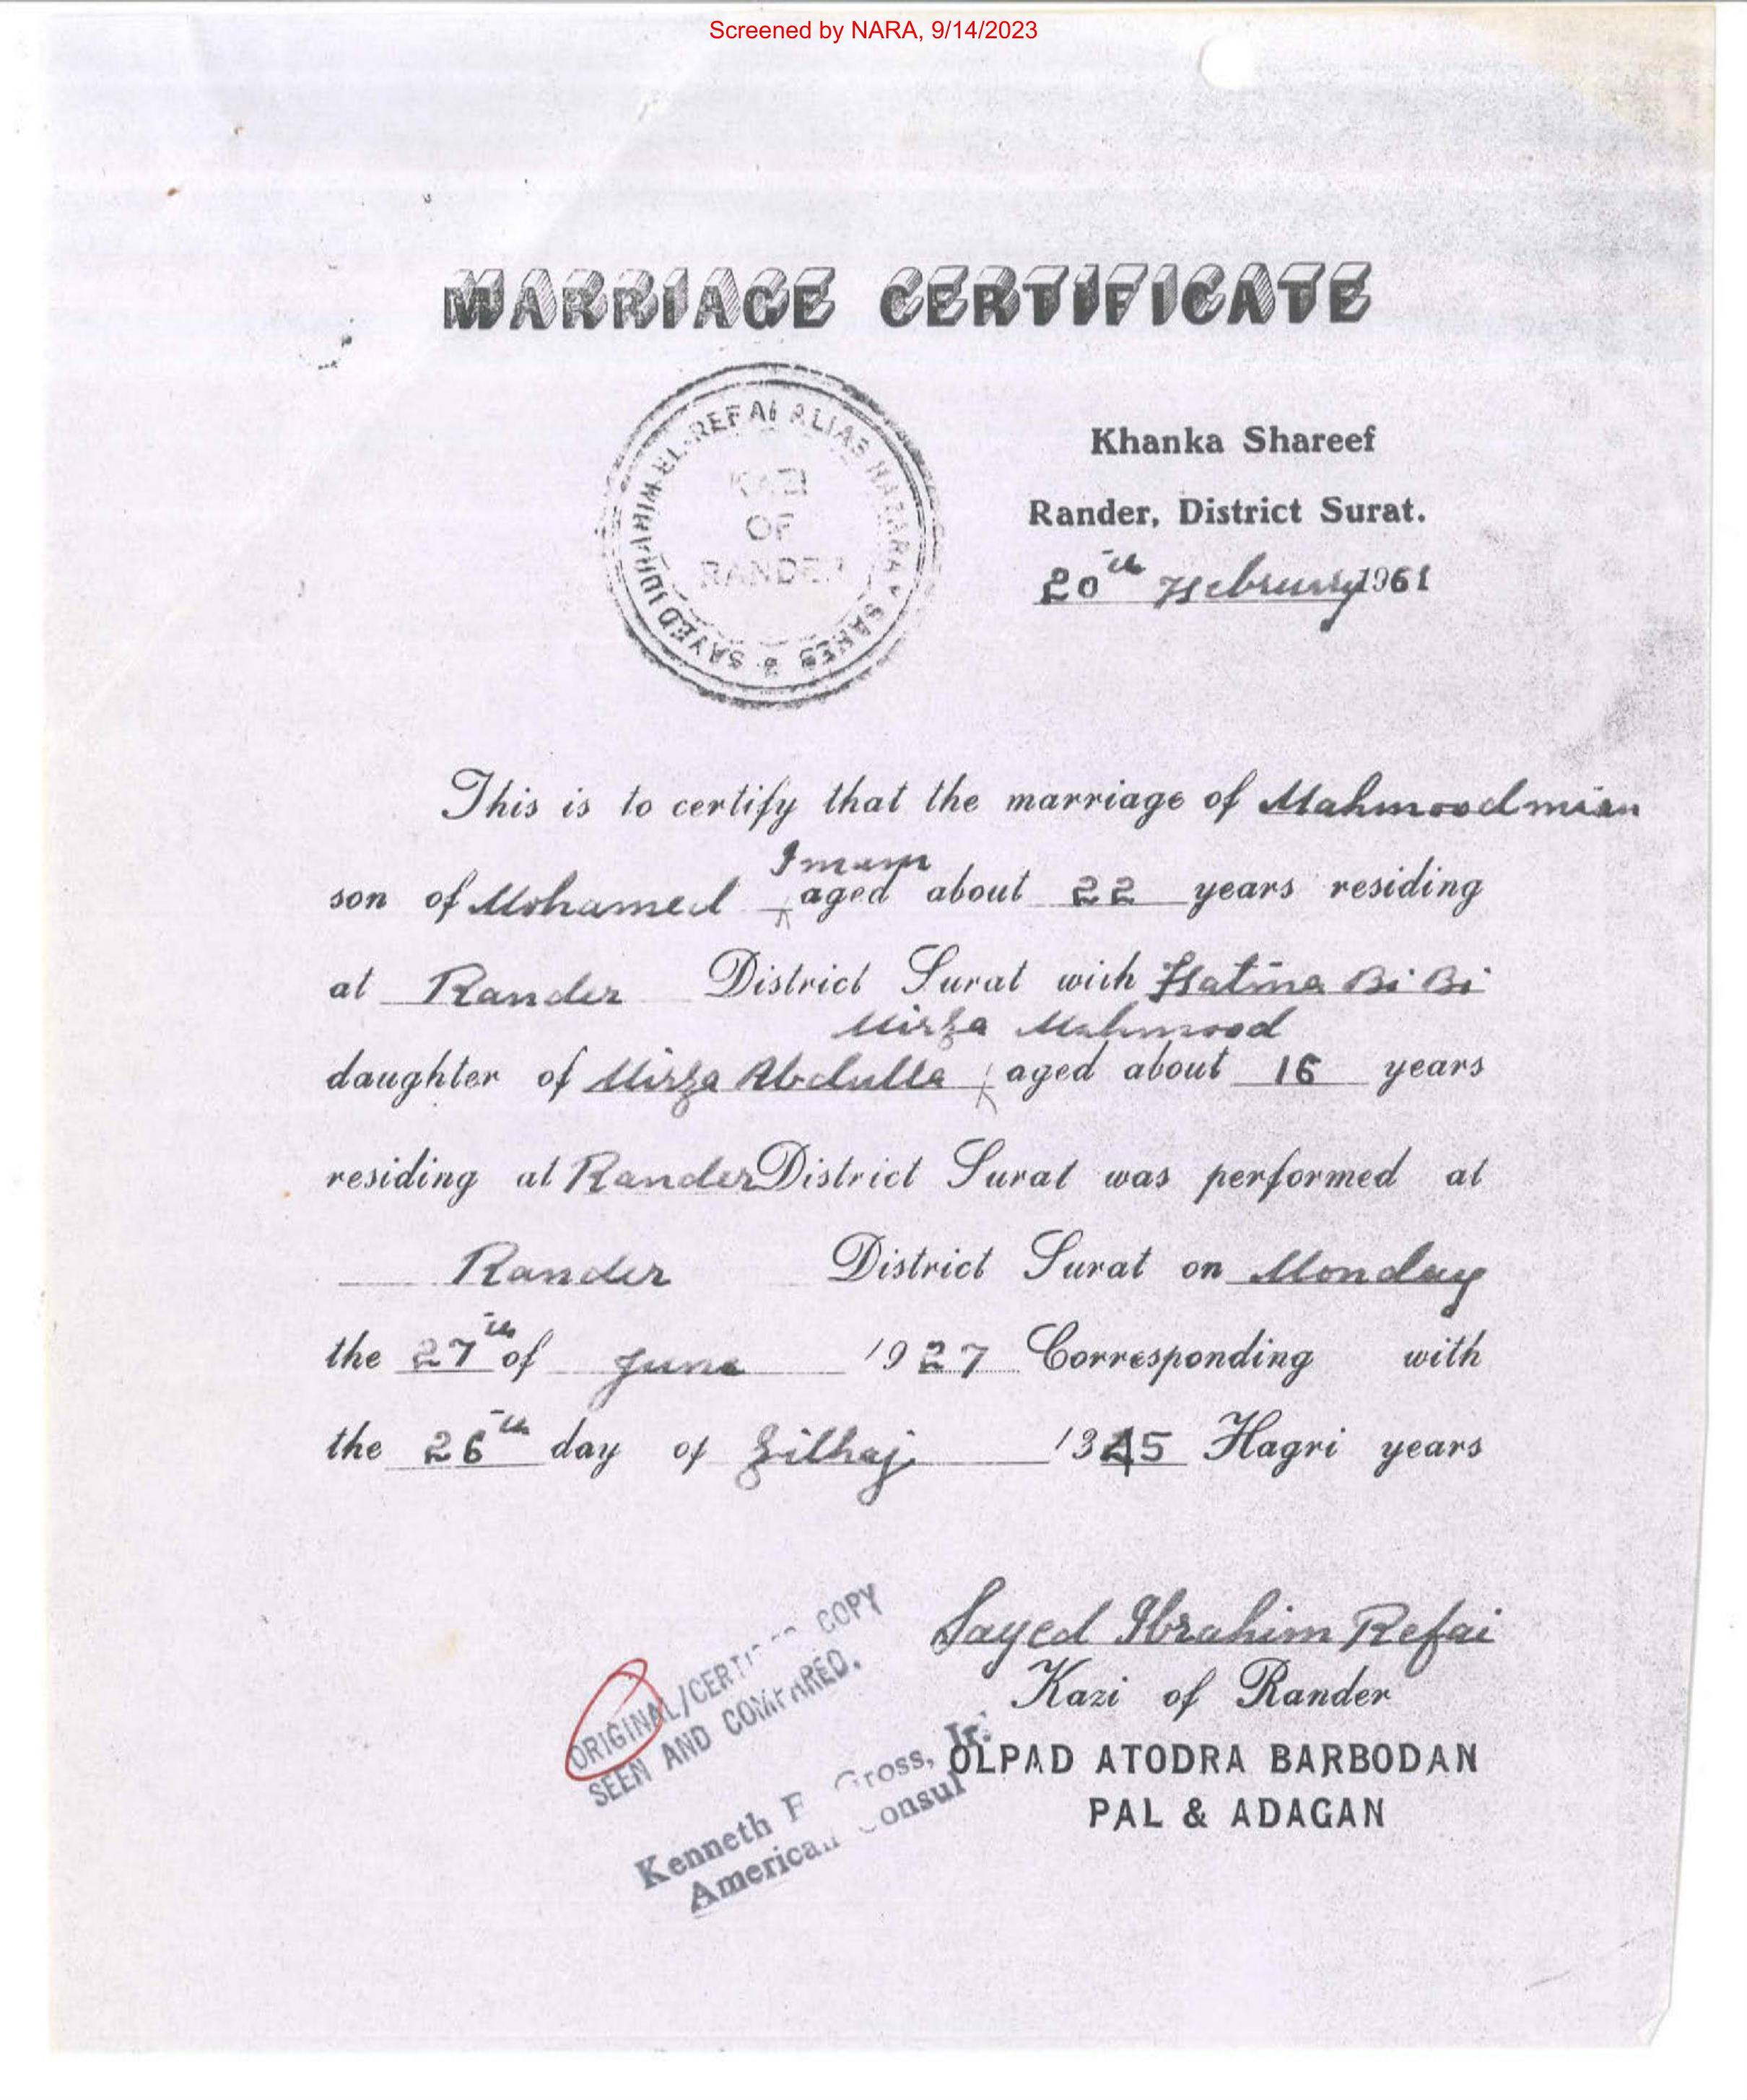 Screened by NARA, 9/14/2023
MARRIAGE CERTIFICATE
SAYED IBRAHIM EL-REFAI ALIAS HAZARA SAKES
KAZI
OF
RANDER
Khanka Shareef
Rander, District Surat.
20th February 1961
This is to certify that the marriage of Mahmoodmian
Imam
son of Mohamed aged about 22 years residing
at Rander District Surat with Fatma Bi Bi
Mirza Mahmood
daughter of Mirza Abdulla aged about 16 years
residing at Rander District Surat was performed at
Rander District Surat on Monday
the 27th of June 1927 Corresponding with
the 26th day of Zilhaj 1345 Hagri years
Sayed Ibrahim Refai
Kazi of Rander
OLPAD ATODRA BARBODAN
PAL & ADAGAN
ORIGINAL/CERTIFIED COPY
SEEN AND COMPARED.
Kenneth Gross, Jr.
American Consul